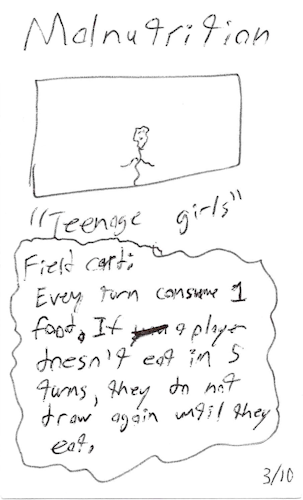 Malnutrition
"Teenage girls"
Field card:
Evey turn consume 1
food. If a player
doesn't eat in 5
turns, they do not
draw again until they
eat.
3/10